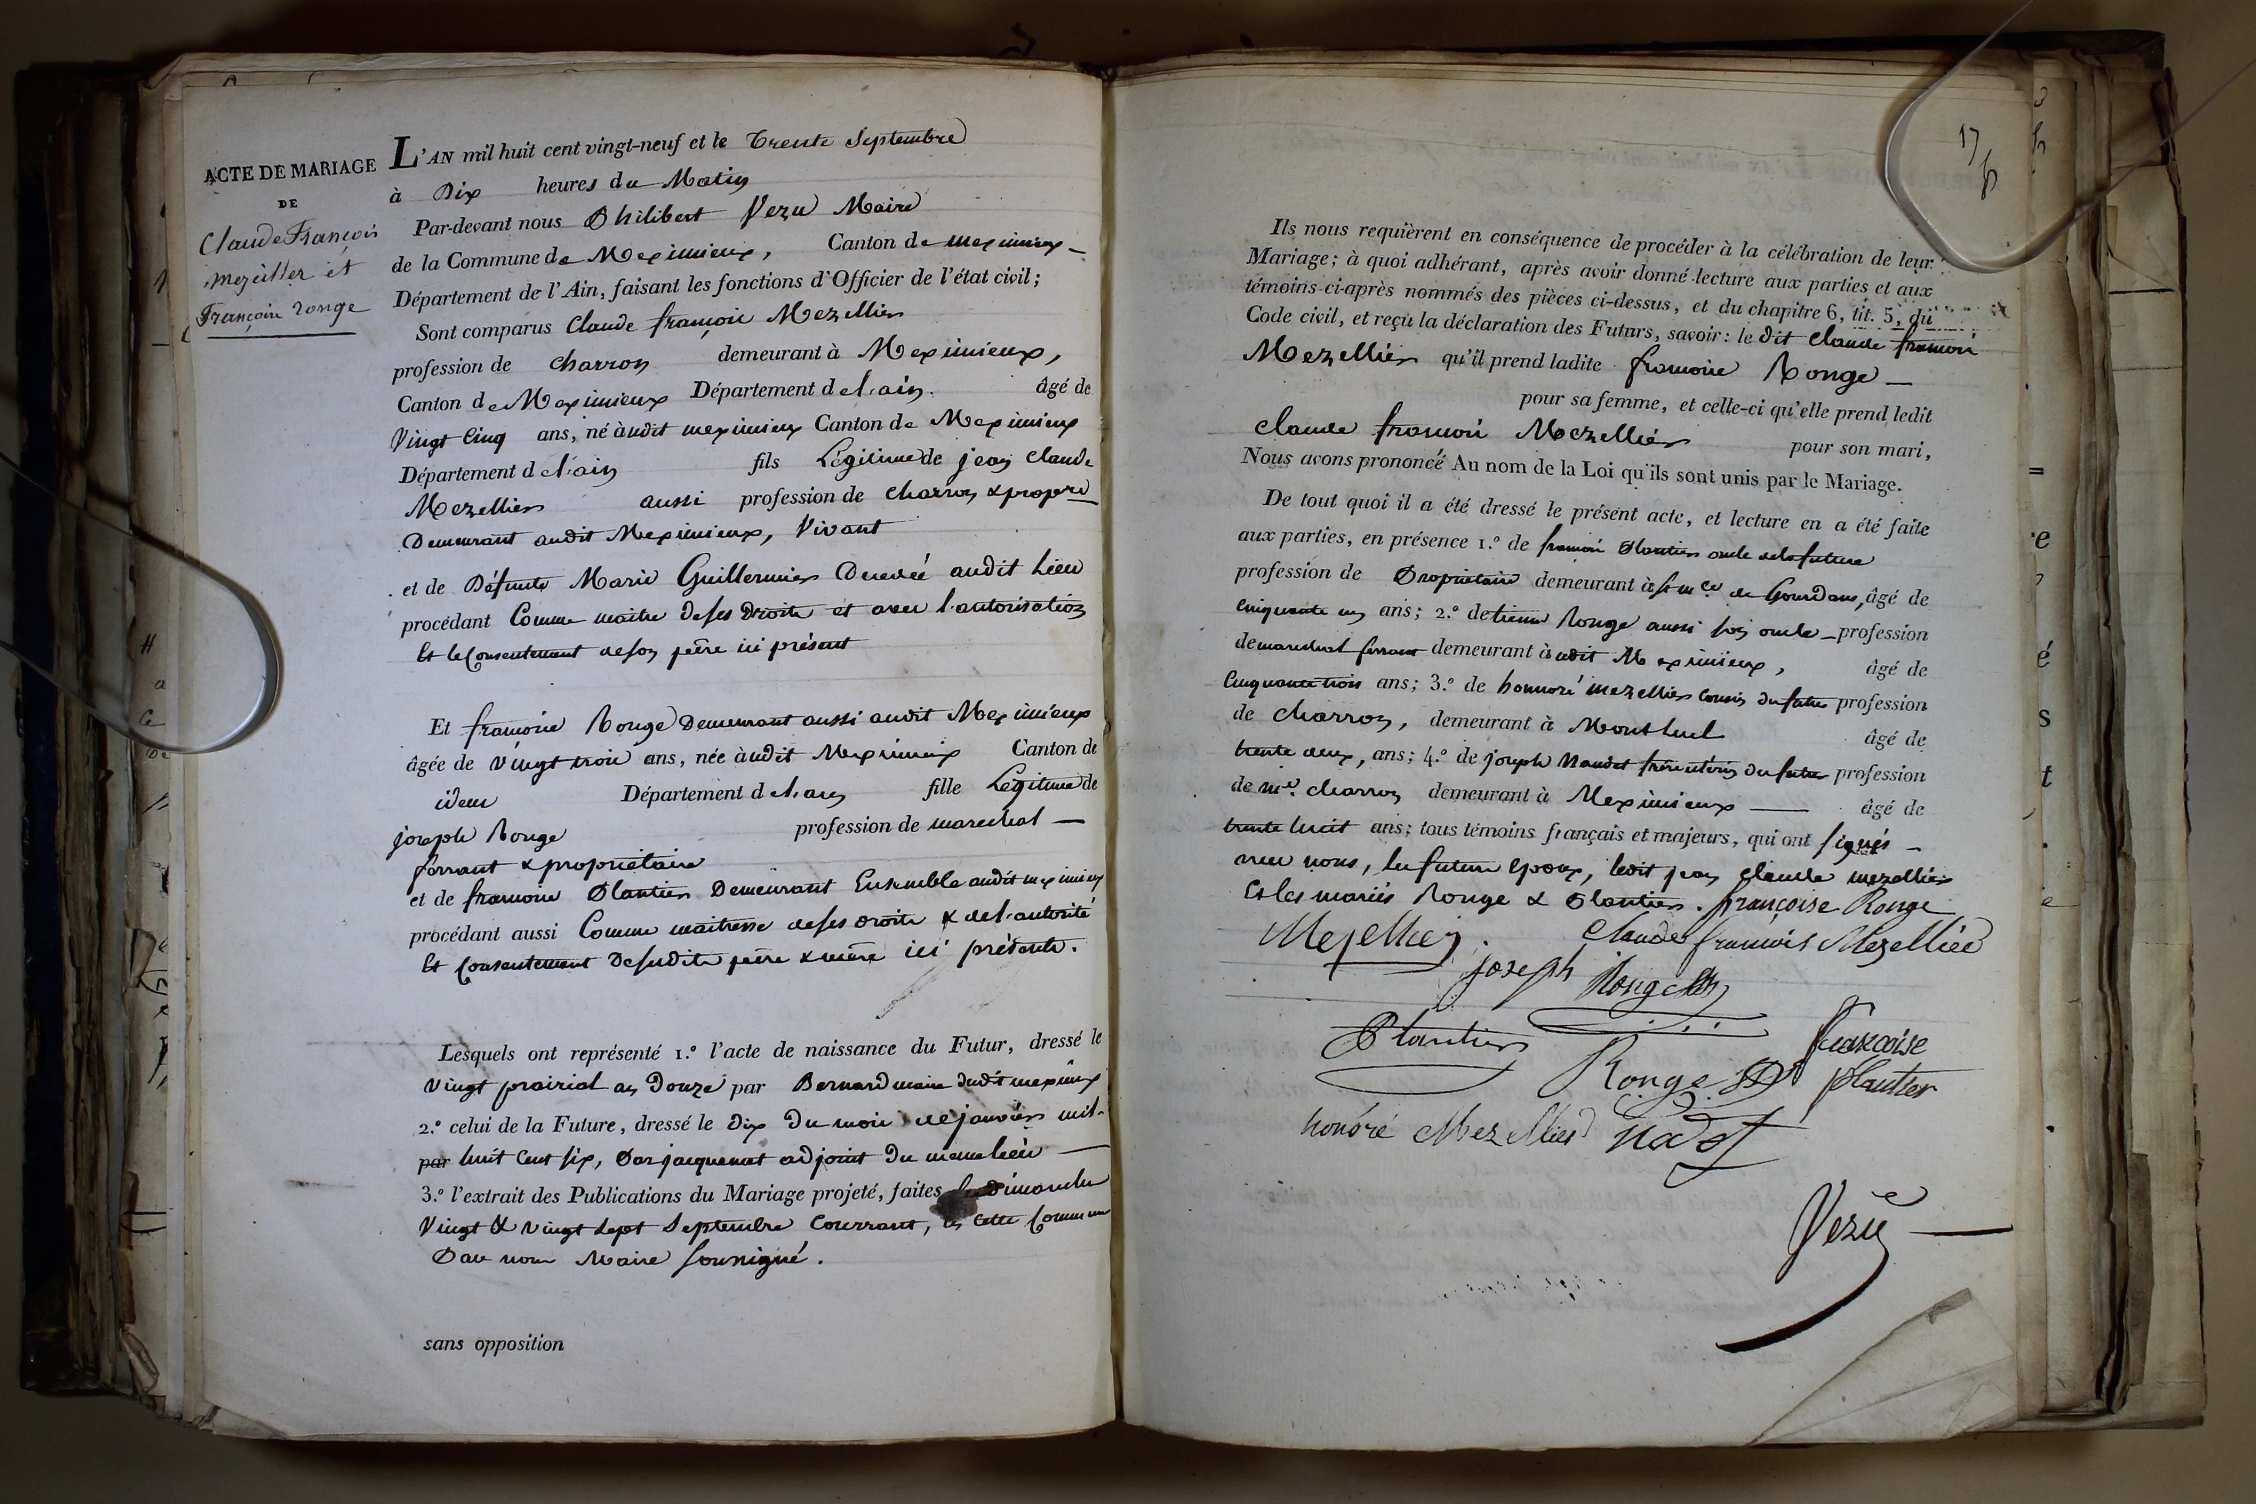 ACTE DE MARIAGE
DE
Claude François
mezellier et
Françoise rouge
L'AN mil huit cent vingt-neuf et le Trente Septembre
à Dix heures du Matin
Par-devant nous Philibert Vezu Maire
de la Commune de Meximieux, Canton de meximieux
Département de l'Ain, faisant les fonctions d'Officier de l'état civil;
Sont comparus Claude françois Mezellier
profession de charron demeurant à Meximieux,
Canton de Meximieux Département de l'ain. âgé de
Vingt Cinq ans, né àudit meximieux Canton de Meximieux
Département de l'ain fils Légitime de jean Claude
Mezellier aussi profession de charron & propre
Demeurant audit Meximieux, Vivant
et de Défunte Marie Guillermier Decedée audit Lieu
procédant Comme maitre de ses Droits et avec l'autorisation
Et le Consentement de son père ici présent
Et françoise Rouge Demeurant aussi audit Meximieux
âgée de vingt trois ans, née àudit Meximieux Canton de
idem Département de l'ain fille Légitime de
joseph Rouge profession de marechal
ferrant & propriétaire
et de françoise Plantier Demeurant Ensemble audit meximieux
procédant aussi Comme maitresse de ses droits & de l'autorité
Et Consentement Desesdits père & mère ici présents.
Lesquels ont représenté 1.º l'acte de naissance du Futur, dressé le
Vingt prairial an Douze par Bernard maire dudit meximieux
2.º celui de la Future, dressé le dix Du mois de janvier mil-
par huit Cent six, Par jacquemet adjoint Du meme lieu
3.º l'extrait des Publications du Mariage projeté, faites les dimanches
Vingt & vingt sept Septembre Courrant, en cette Commune
Par nous Maire soussigné.
sans opposition
17
Ils nous requièrent en conséquence de procéder à la célébration de leur
Mariage; à quoi adhérant, après avoir donné lecture aux parties et aux
témoins ci-après nommés des pièces ci-dessus, et du chapitre 6, tit. 5, du
Code civil, et reçu la déclaration des Futurs, savoir: le dit Claude françois
Mezellier qu'il prend ladite françoise Rouge
pour sa femme, et celle-ci qu'elle prend ledit
Claude françois Mezellier pour son mari,
Nous avons prononcé Au nom de la Loi qu'ils sont unis par le Mariage.
De tout quoi il a été dressé le présent acte, et lecture en a été faite
aux parties, en présence 1.º de françois Plantier oncle de la future
profession de Propriétaire demeurant à de Gourdans, âgé de
cinquante un ans; 2.º detienne Rouge aussi son oncle profession
de marechal ferrant demeurant àudit Meximieux, âgé de
Cinquante trois ans; 3.º de honnoré mezellier cousin du futur profession
de charron, demeurant à Montluel âgé de
trente deux, ans; 4.º de joseph Naudet frère utérin du futur profession
de me charron demeurant à Meximieux âgé de
trente huit ans; tous témoins français et majeurs, qui ont signés
avec nous, les futurs epoux, ledit jean claude mezellier
Et les mariés Rouge & Plantier. françoise Rouge
Mezellier. Claude françois Mezellier
joseph Rouge
Plantier françoise
Rouge plantier
honoré Mezellier
Vezu